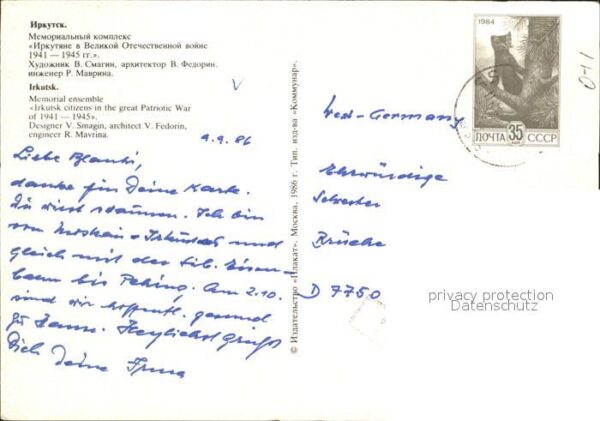 Иркутск.
Мемориальный комплекс
«Иркутяне в Великой Отечественной войне
1941 — 1945 гг.».
Художник В. Смагин, архитектор В. Федорин.
инженер Р. Маврина.
Irkutsk.
Memorial ensemble
«Irkutsk citizens in the great Patriotic War
of 1941 — 1945».
Designer V. Smagin, architect V. Fedorin,
engineer R. Mavrina.
9.9.86
Liebe Blanki,
danke für Deine Karte.
Du wirst staunen. Ich bin
von Moskau + Irkutsk und
gleich mit der sib. Eisen
bahn bis Peking. Am 2.10.
sind wir hoffentl. gesund
zu Hause. Herzlichst grüßt
Dich Deine Irma
© Издательство «Плакат». Москва, 1986 г. Тип. изд-ва «Коммунар».
1984
ПОЧТА 35 СССР
West-Germany
Ehrwürdige
Schwester
D 7750
privacy protection
Datenschutz